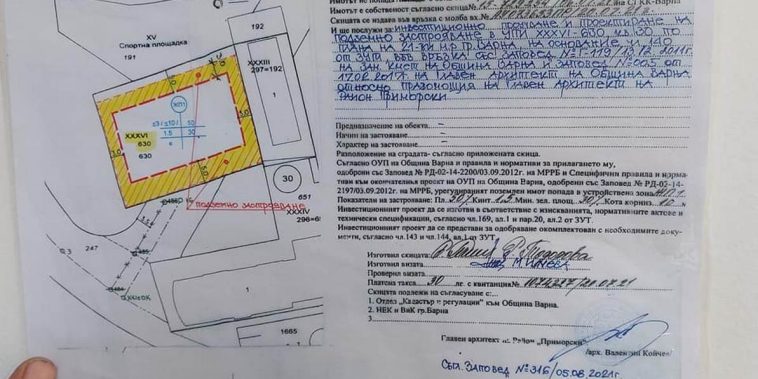 XV
Спортна площадка
191
192
XXXIII
297=192
1
ЖП1
≤3/≤10/ 50
1.5 30
5.0
3.0
3.0
5.0
XXXVI
630
630
30
651
XXXIV
298=6
247
3
подземно застрояване
1
1665
Имотът е собственост съгласно
Скицата се издава във връзка с молба вх.
И ще послужи за: инвестиционно проучване и проектиране на
подземно застрояване в УПИ XXXVI-630, кв.30 по
плана на 21-ви м.р. гр. Варна, на основание чл.140
от ЗУТ, във връзка със Заповед
на Зам. Кмет на Община Варна и Заповед №005 от
17.02.2017г. на Главен Архитект на Община Варна
относно правомощия на Главен Архитект на
Район Приморски
Предназначение на обекта –
Начин на застрояване –
Характер на застрояване –
Разположение на сградата- съгласно приложената скица.
Съгласно ОУП на Община Варна и правила и нормативи за прилагането му,
одобрени със Заповед № РД-02-14-2200/03.09.2012г. на МРРБ и Специфични правила и норма-
тиви към окончателния проект на ОУП на Община Варна, одобрени със Заповед № РД-02-14-
2197/03.09.2012г. на МРРБ, урегулираният поземлен имот попада в устройствена зона ЖП1
Показатели на зоната: Пл. 30/ Кинт 1.5 Мин. площ озел. 30/ Кота корниз 10
Инвестиционният проект да се изготви в съответствие с изискванията, нормативните актове и
технически спецификации, съгласно чл.169, ал.1 и пар.20, ал.2 от ЗУТ.
Инвестиционният проект да се представи за одобряване окомплектован с необходимите доку-
менти, съгласно чл.143 и чл.144, ал.1 от ЗУТ.
Изготвил скицата: Р. Тодорова
Изготвил визата:
Проверил визата
Платена такса 30 лв. с квитанция №
Скицата подлежи на съгласуване с:
1. Отдел „Кадастър и регулации" към Община Варна.
2. НЕК и ВиК гр.Варна
Главен архитект на Район „Приморски"
/арх. Валентин Койчев/
Съгл. Заповед №316/05.08.2021г.